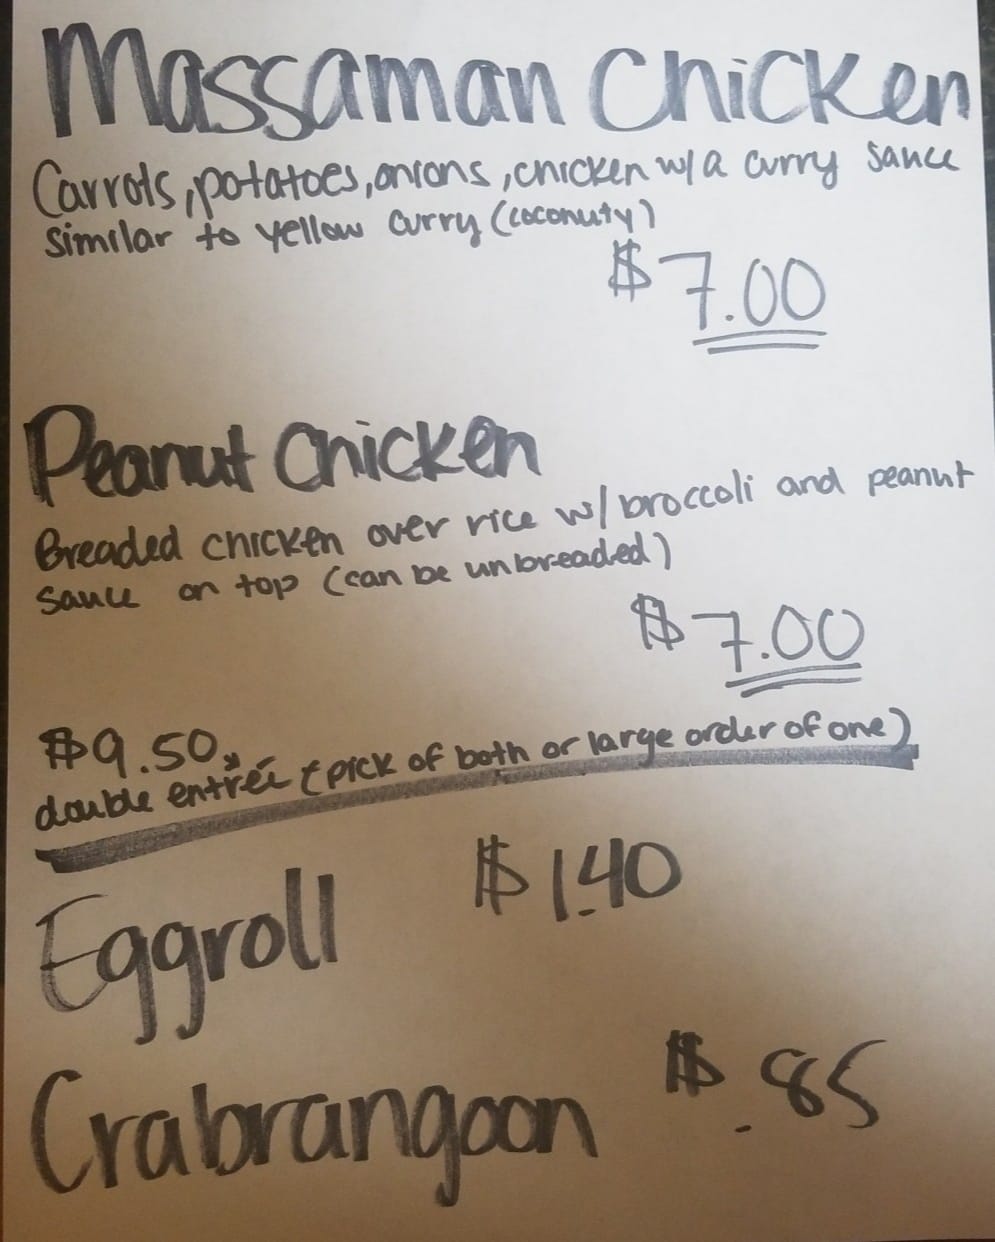 Massaman Chicken
Carrots, potatoes, onions, chicken w/ a curry sauce
similar to yellow curry (coconuty)
$7.00
Peanut Chicken
Breaded chicken over rice w/ broccoli and peanut
sauce on top (can be unbreaded)
$7.00
$9.50
double entrée (pick of both or large order of one)
Eggroll $1.40
Crabrangoon $.85